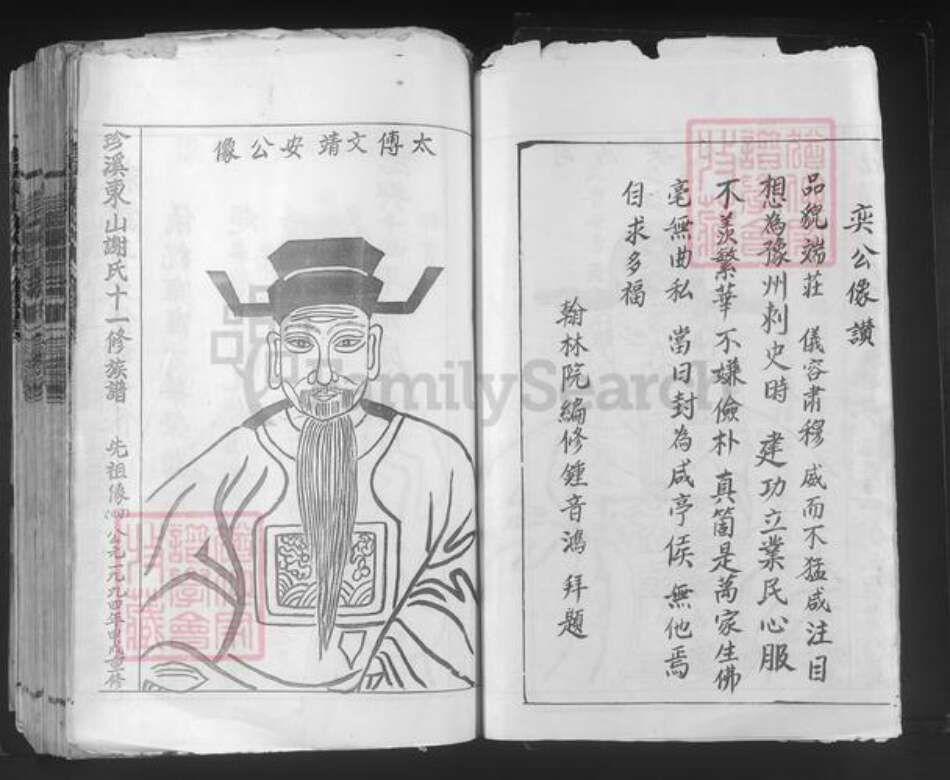 奕公像讚
品貌端莊 儀容肅穆 威而不猛咸注目
想為豫州刺史時 建功立業民心服
不羨繁華 不嫌儉朴 真箇是萬家生佛
毫無曲私 當日封為咸亭侯 無他焉
自求多福
翰林院編修鍾音鴻 拜題
太傅文靖安公像
珍溪東山謝氏十一修族譜 先祖像 公元一九九四年
FamilySearch